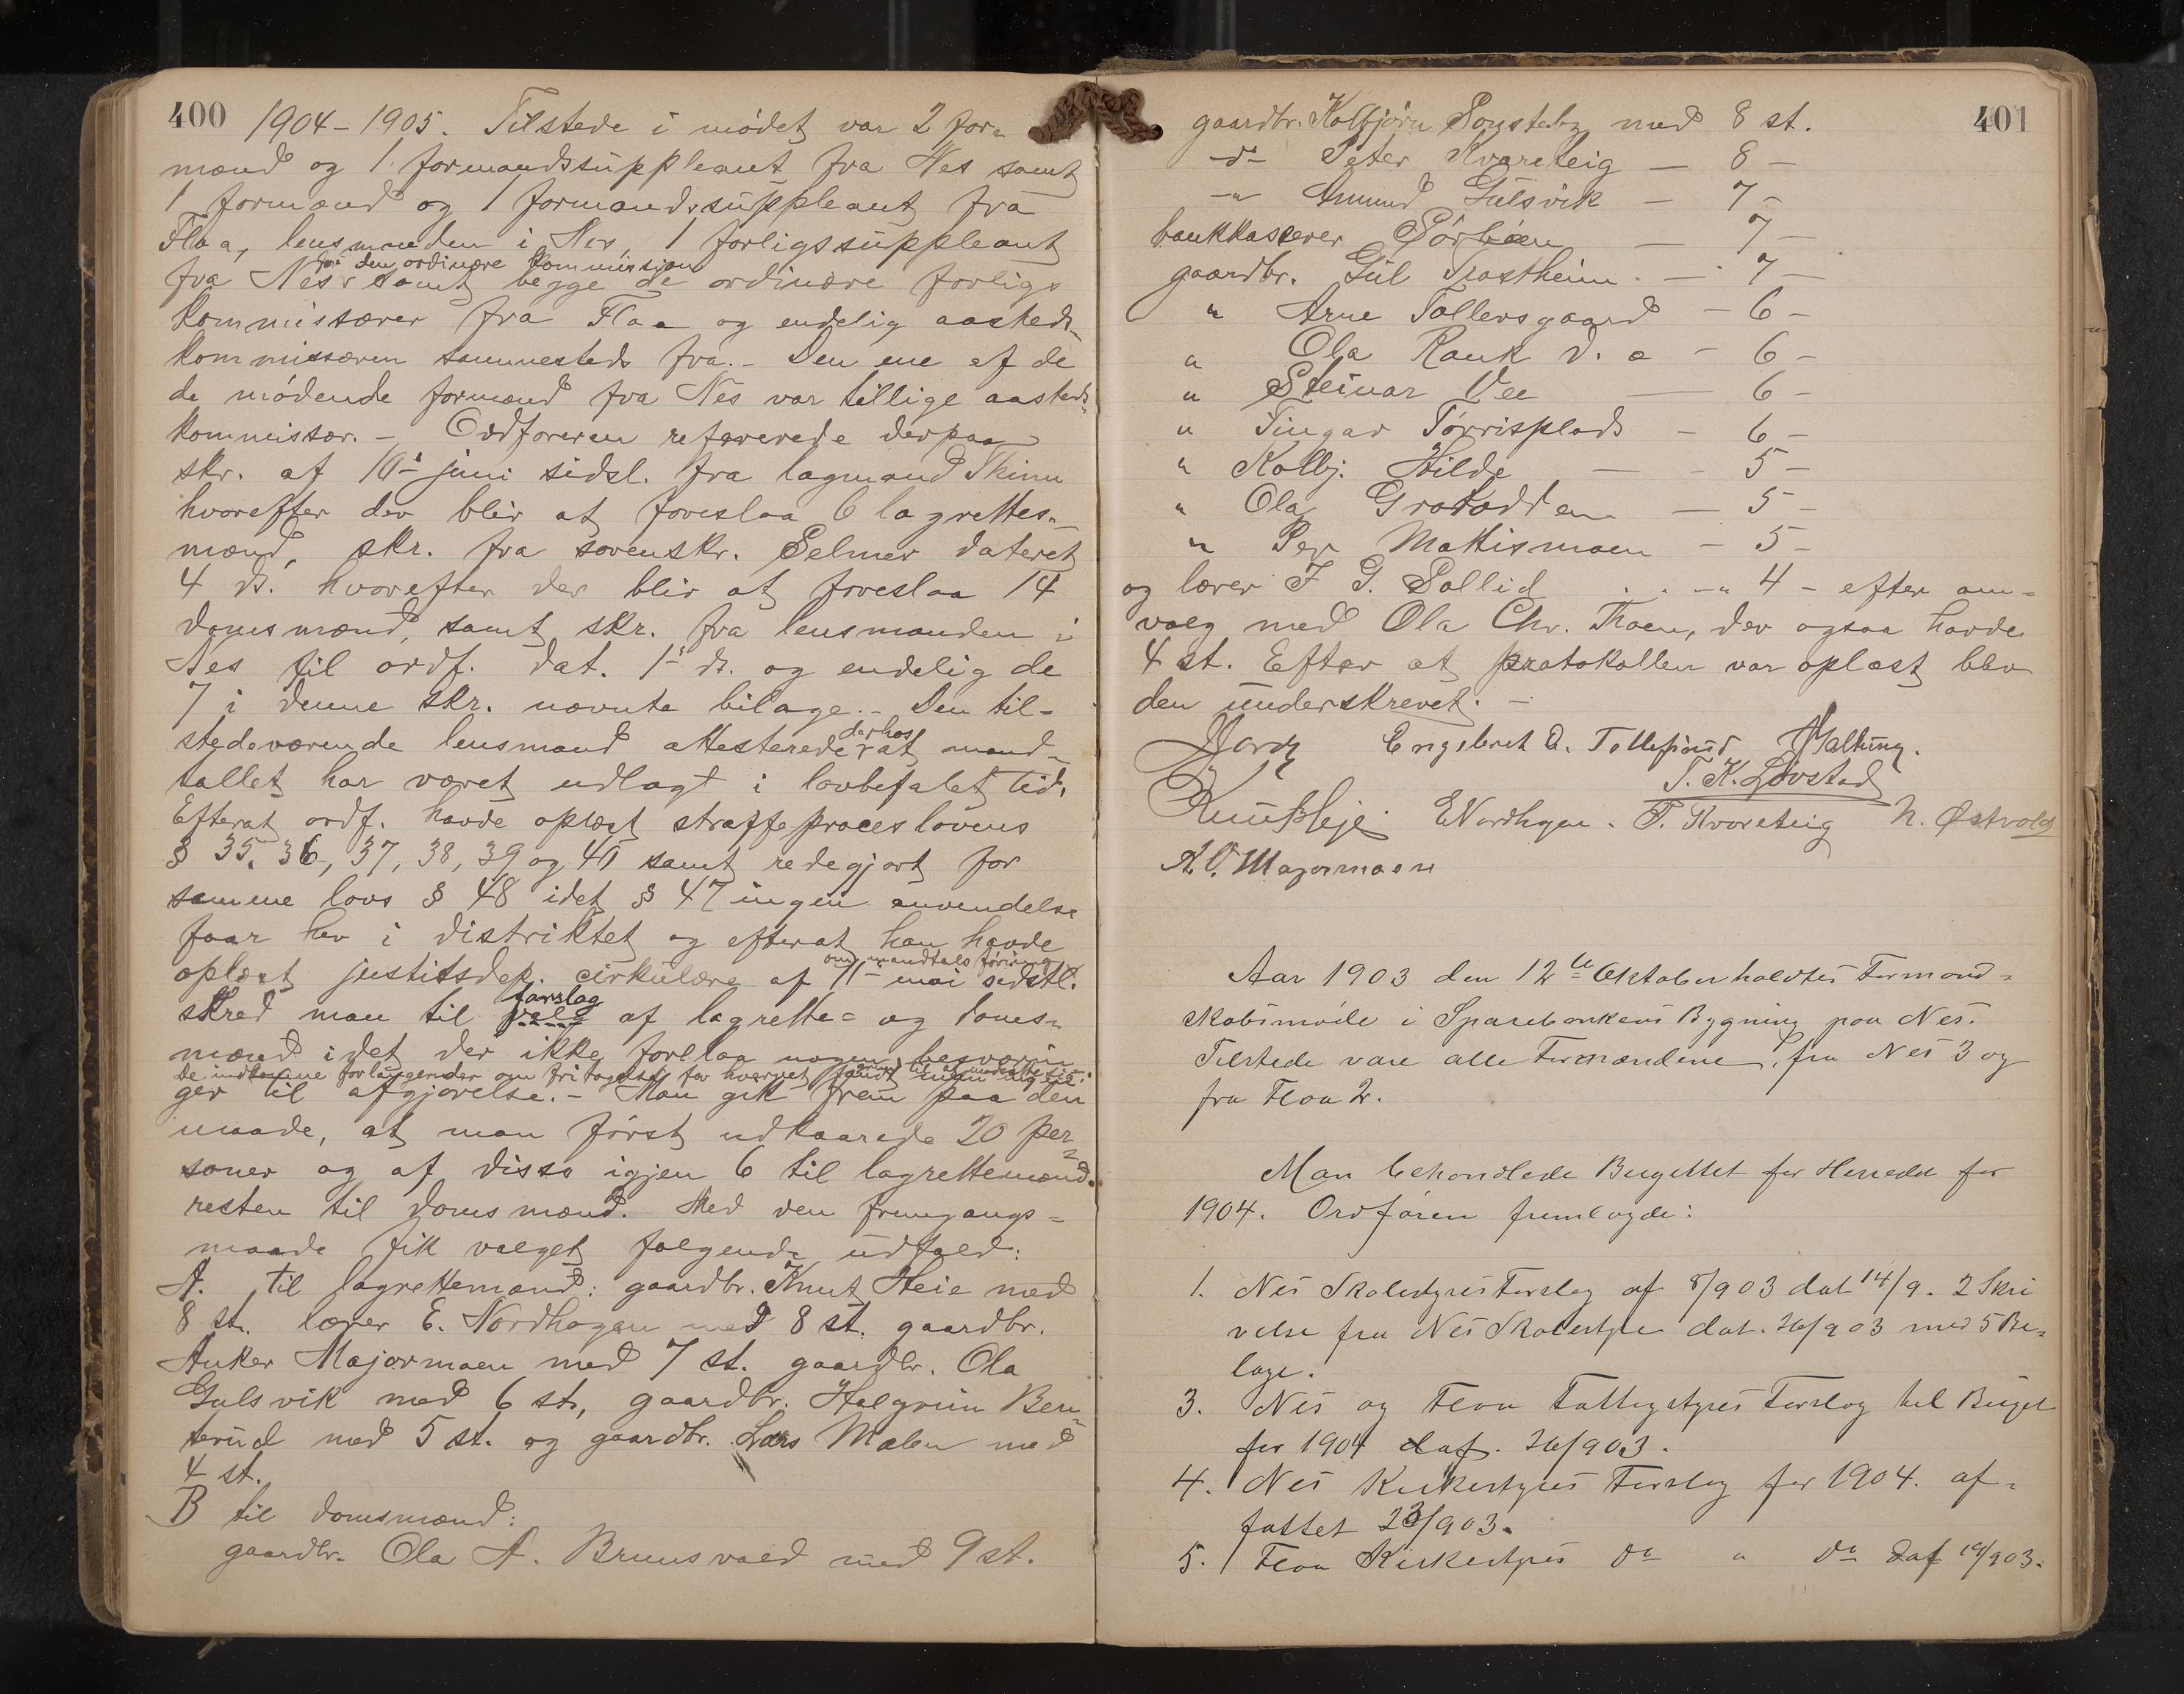 400
1904-1905. Tilstede i mødet var 2 for-
mænd og 1 formandssuppleant fra Nes samt
1 formænd og 1 formandssuppleant fra
Flaa, lensmanden i Nes, 1 forligssuppleant
for den ordinære kommission
fra Nes samt begge de ordinære forligs
kommissærer fra Flaa og endelig aasteds-
kommissæren sammesteds fra. - Den ene af de
de mødende formænd fra Nes var tillige aasteds-
kommissær. - Ordføreren refererede derpaa
skr. af 10- juni sidsl. fra lagmand Thinn
hvorefter der blir at foreslaa 6 lagrettes-
mænd, skr. fra sorenskr. Selmer dateret
4 ds. hvorefter der blir at foreslaa 14
domsmænd, samt skr. fra lensmanden i
Nes til ordf. dat. 1- ds. og endelig de
7 i denne skr. nævnte bilage. - Den til-
derhos
stedeværende lensmand attesterede at mand-
tallet har været udlagt i lovbefalet tid.
Efterat ordf. havde oplæst straffeproceslovens
§ 35, 36, 37, 38, 39 og 40 samt redegjort for
samme lovs § 48 idet § 47 ingen anvendelse
faar her i distriktet og efterat han havde
om mandtals føring
oplæst justitsdep. cirkulære af 11- mai sidstl.
forslag
skred man til valg af lagrette- og doms-
mænd idet der ikke forelaa nogen besværin
De indkomne forlangender om fritagelse for hvervet fandt man ingen
ger til afgjørelse. - Man gik frem paa den
maade, at man først udkaarede 20 per-
soner og af disse igjen 6 til lagrettemænd.
resten til domsmænd. Med den fremgangs-
maade fik valget følgende udfald:
A. til lagrettemænd: gaardbr. Knut Heie med
8 st. lærer E. Nordhagen med 8 st. gaardbr.
Anker Majormoen med 7 st. gaardbr. Ola
Gulsvik med 6 st., gaardbr. Halgrim Ben-
terud med 5 st. og gaardbr. Lars Malen med
4 st.
B til domsmænd:
gaardbr. Ola A. Bruusvold med 9 st.
401
gaardbr. Kolbjørn Sonsteby med 8 st.
-d- Peter Kvareteig - 8 -
-"- Amund Gulsvik - 7 -
bankkasserer Sørbøen - 7 -
gaardbr. Gul Trostheim - 7 -
" Arne Tollersgaard - 6 -
" Ola Rauk d. a - 6 -
" Steinar Vee - 6 -
" Tingar Tørrisplads - 6 -
" Kolbj. Hilde - 5 -
" Ola Grotodden - 5 -
" Per Mattismoen - 5 -
og lærer J. G. Sollid -"- 4 - efter om-
valg med Ola Chr. Thoen, der ogsaa havde
4 st. Efter at protokollen var oplæst blev
den underskrevet. -
Engebret O. Tollefsrud
T. K. Løvstad
Knut Heje E Nordhgen. P. Kvareteig N. Østvold
A. O. Majormoen
Aar 1903 den 12te Oktober holdtes Formand-
skabsmøde i Sparebankens Bygning paa Nes.
Tilstede vare alle Formændene, fra Nes 3 og
fra Flaa 2.
Man behandlede Bugettet for Herredet for
1904. Ordføren fremlagde:
1. Nes Skolestyres Forslag af 8/9 03 dat 14/9. 2 Skri
velse fra Nes Skolestyre dat. 26/9 03 med 5 Be-
lage.
3. Nes og Flaa Fattigstyres Forslag til Buget
for 1904 daf. 26/9 03.
4. Nes Kirkestyres Forslag for 1904. af-
fattet 23/9 03.
5. Flaa Kirkestyres do " do daf 19/9 03.